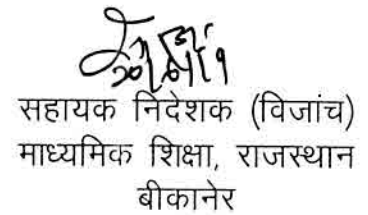 सहायक निदेशक (विजांच)
माध्यमिक शिक्षा, राजस्थान
बीकानेर